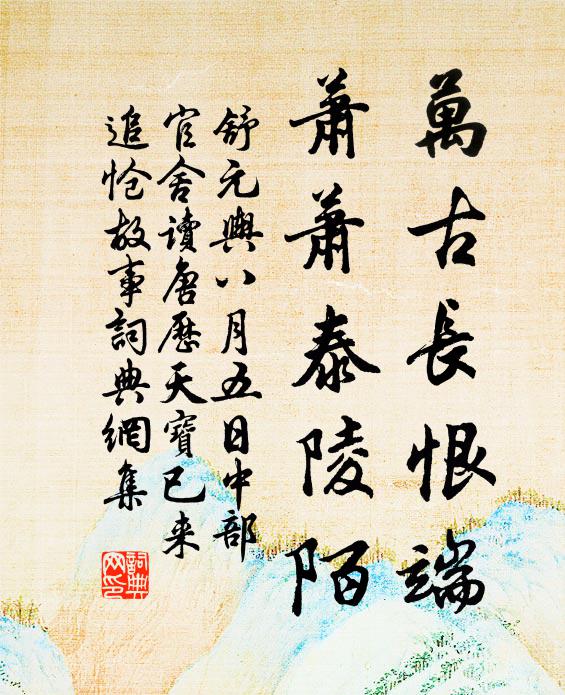 萬古長恨端
蕭蕭泰陵陌
舒元輿八月五日中部
官舍讀唐歷天寶已来
追愴故事詞典網集
詞典
网印